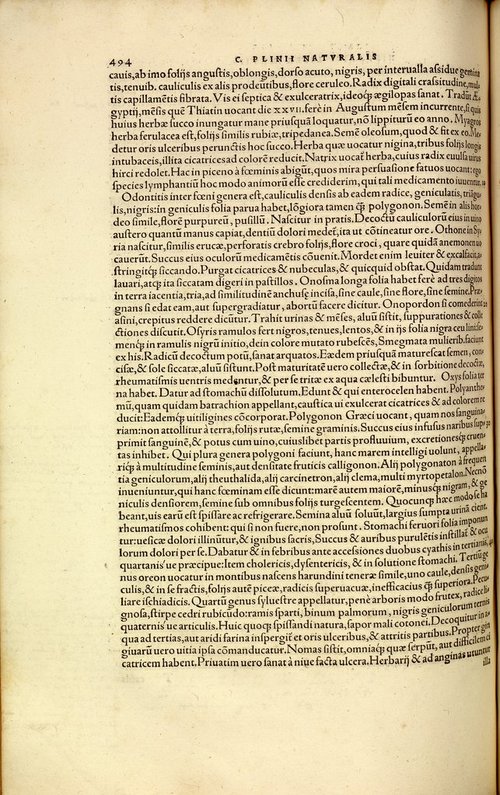 494 C. PLINII NATVRALIS
cauis, ab imo folijs angustis, oblongis, dorso acuto, nigris, per interualla assidue gemina
tis, tenuib. cauliculis ex alis prodeutibus, flore ceruleo. Radix digitali crassitudine, mul
tis capillamētis fibrata. Vis ei septica & exulceratrix, ideoq́; ægilopas sanat. Tradūt æ
gyptij, mēsis quē Thiatin uocant die XXVII. ferè in Augustum mēsem incurrente, si quis
huius herbæ succo inungatur mane priusq̃ loquatur, nō lippiturū eo anno. Myagros
herba ferulacea est, folijs similis rubiæ, tripedanea. Semē oleosum, quod & fit ex eo. Me
detur oris ulceribus perunctis hoc succo. Herba quæ uocatur nigina, tribus folijs longis
intubaceis, illita cicatrices ad colorē reducit. Natrix uocat̃ herba, cuius radix euulsa uirus
hirci redolet. Hac in piceno à fœminis abigūt, quos mira persuasione fatuos uocant: ego
species lymphantiū hoc modo animorū esse crediderim, qui tali medicamento iuuentur.
Odontitis inter fœni genera est, cauliculis densis ab eadem radice, geniculatis, triāgu
lis, nigris: in geniculis folia parua habet, lōgiora tamen q̃ polygonon. Semē in alis hor
deo simile, florē purpureū, pusillū. Nascitur in pratis. Decoctū cauliculorū eius in uino
austero quantū manus capiat, dentiū dolori medet̃, ita ut cōtineatur ore. Othone in Sy
ria nascitur, similis erucæ, perforatis crebro folijs, flore croci, quare quidā anemonen uo
cauerūt. Succus eius oculorū medicamētis cōuenit. Mordet enim leuiter & excalfacit, a
stringitq́; siccando. Purgat cicatrices & nubeculas, & quicquid obstat. Quidam tradunt
lauari, atq̃ ita siccatam digeri in pastillos. Onosma longa folia habet ferè ad tres digitos
in terra iacentia, tria, ad similitudinē anchusę incisa, sine caule, sine flore, sine semine. Præ
gnans si edat eam, aut supergradiatur, abortū facere dicitur. Onopordon si comederint
asini, crepitus reddere dicūtur. Trahit urinas & mēses, aluū sistit, suppurationes & colle
ctiones discutit. Osyris ramulos fert nigros, tenues, lentos, & in ijs folia nigra ceu lini: se
menq́; in ramulis nigrū initio, dein colore mutato rubescēs. Smegmata mulierib. faciunt
ex his. Radicū decoctum potū, sanat arquatos. Eædem priusquā maturescat semen, con
cisæ, & sole siccatæ, aluū sistunt. Post maturitatē uero collectæ, & in sorbitione decoctæ,
rheumatismis uentris medentur, & per se tritæ ex aqua cælesti bibuntur. Oxys folia ter
na habet. Datur ad stomachū dissolutum. Edunt & qui enterocelen habent. Polyanthe
mū, quam quidam batrachion appellant, caustica ui exulcerat cicatrices & ad colorem re
ducit: Eademq́; uitiligines cōcorporat. Polygonon Græci uocant, quam nos sanguina
riam: non attollitur à terra, folijs rutæ, semine graminis. Succus eius infusus naribus sup
primit sanguinē, & potus cum uino, cuiuslibet partis profluuium, excretionesq́; cruen
tas inhibet. Qui plura genera polygoni faciunt, hanc marem intelligi uolunt, appella
riq́; à multitudine seminis, aut densitate fruticis calligonon. Alij polygonaton à frequen
tia geniculorum, alij theuthalida, alij carcinetron, alij clema, multi myrtopetalon. Necnō
inueniuntur, qui hanc fœminam esse dicunt: marē autem maiorē, minusq́; nigram, & ge
niculis densiorem, semine sub omnibus folijs turgescentem. Quocunq̃ hæc modo se ha
beant, uis earū est spissare ac refrigerare. Semina aluū soluūt, largius sumpta urinā cient,
rheumatismos cohibent: qui si non fuere, non prosunt. Stomachi feruori folia imponun
tur: uesicæ dolori illinūtur, & ignibus sacris, Succus & auribus purulētis instillat̃ & ocu
lorum dolori per se. Dabatur & in febribus ante accessiones duobus cyathis in tertianis,
quartanis uę præcipue: Item cholericis, dysentericis, & in solutione stomachi. Tertiū ge
nus oreon uocatur in montibus nascens harundini teneræ simile, uno caule, densis geni
culis, & in se fractis, folijs autē piceæ, radicis superuacuæ, inefficacius q̃ superiora. Pecu
liare ischiadicis. Quartū genus syluestre appellatur, penè arboris modo frutex, radice li
gnosa, stirpe cedri rubicūdo: ramis sparti, binum palmorum, nigris geniculorum ternis
quaternis ue articulis. Huic quoq́; spissandi natura, sapor mali cotonei. Decoquitur in a
qua ad tertias, aut aridi farina inspergit̃ et oris ulceribus, & attritis partibus. Propter gin
giuarū uero uitia ipsa cōmanducatur. Nomas sistit, omniaq́; quæ serpūt, aut difficilem ci
catricem habent. Priuatim uero sanat à niue facta ulcera. Herbarij & ad anginas utuntur
illa